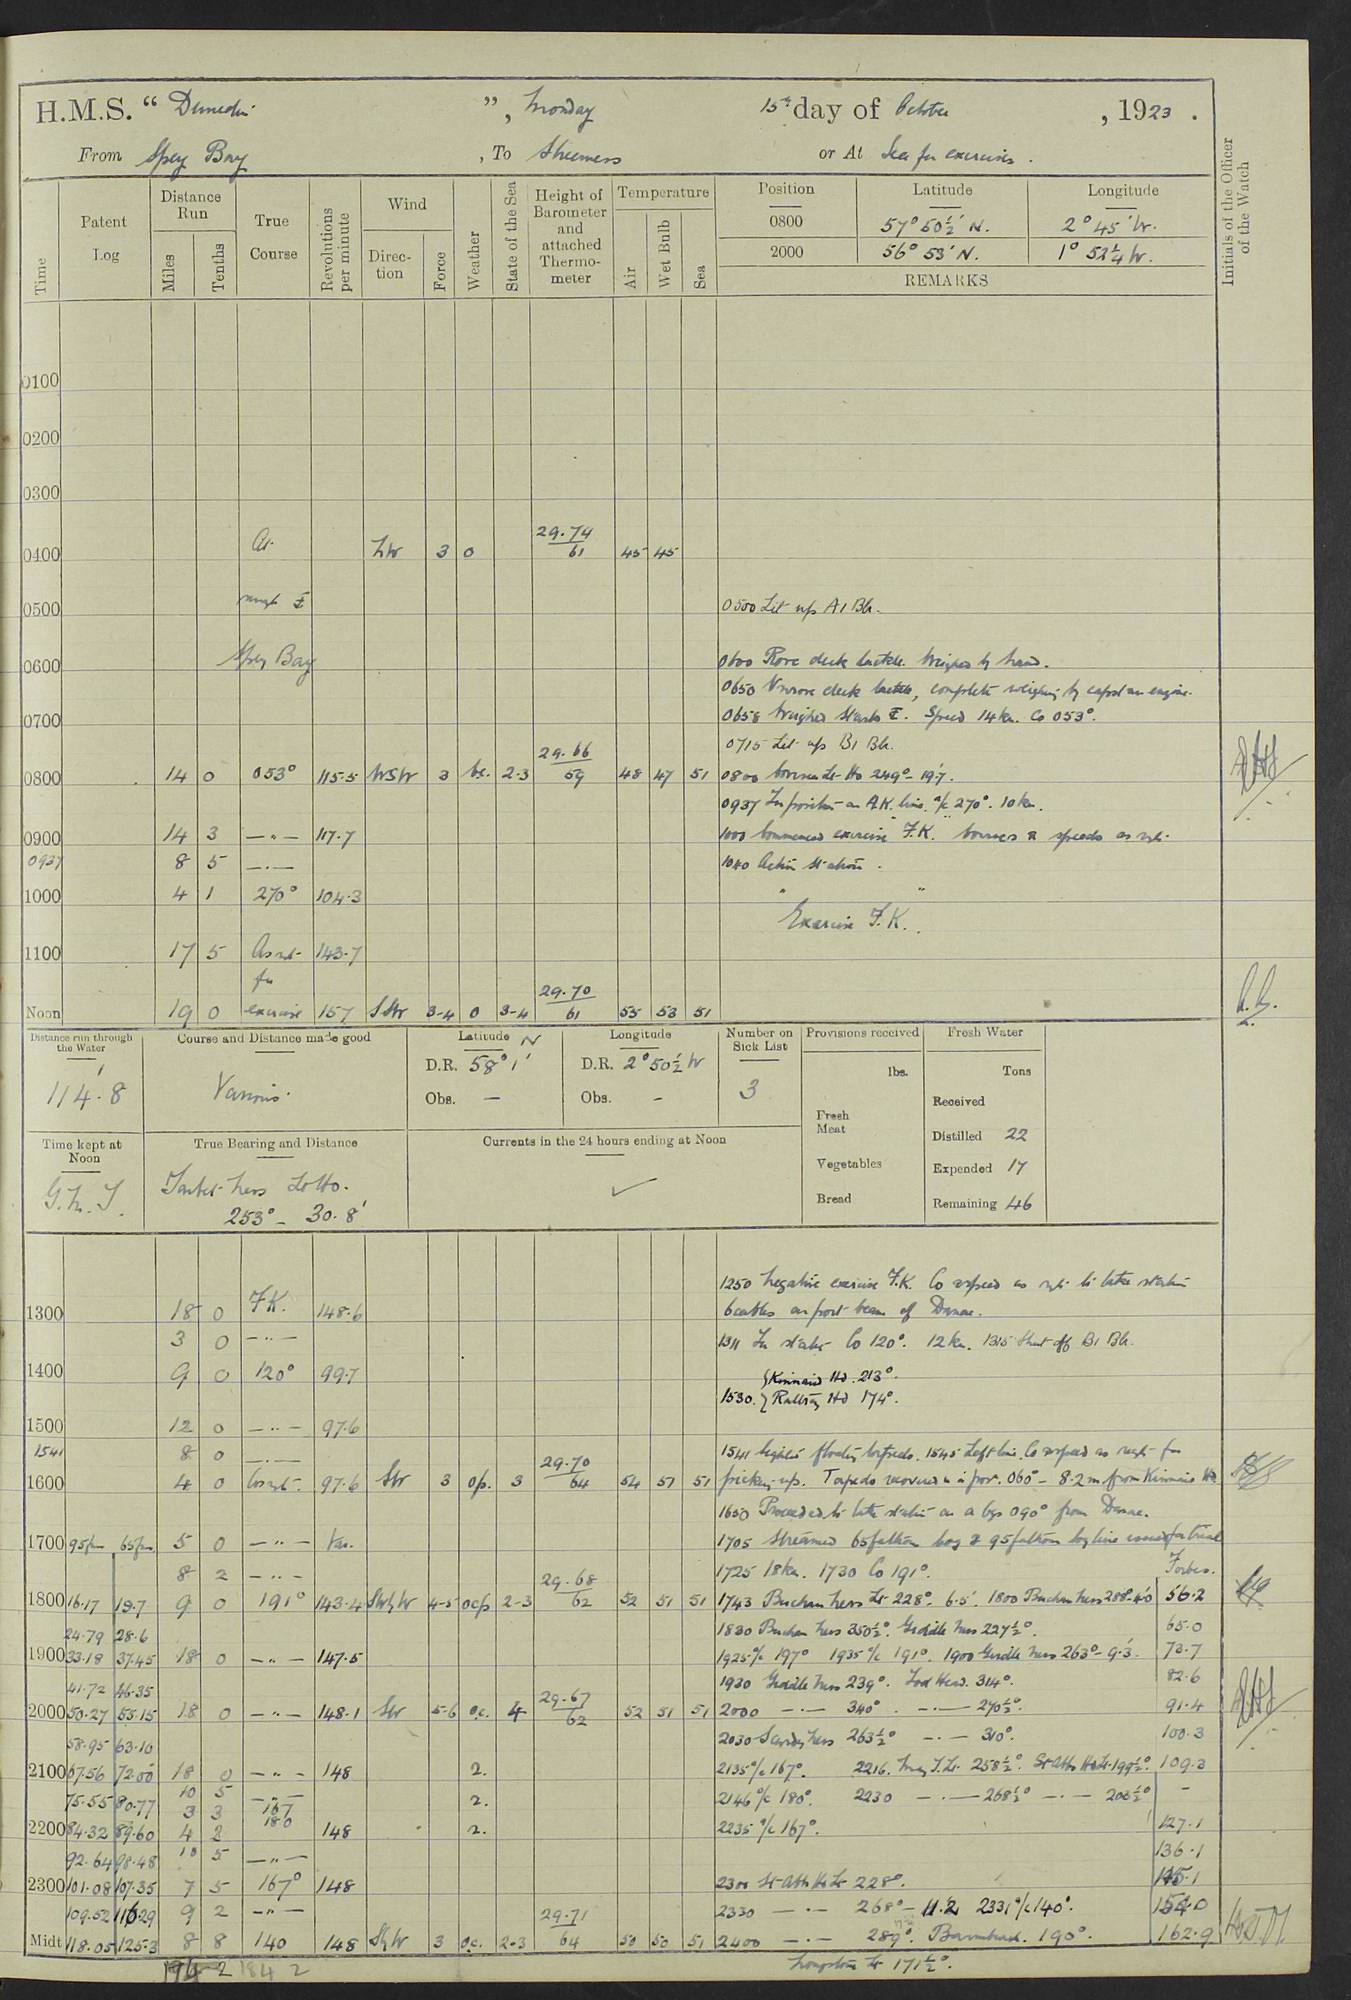 H.M.S. " Dunedin ", Monday 15th day of October, 1923.
From Spey Bay, To Sheerness or At Sea for exercises.
Time
Patent Log
Distance Run
Miles
Tenths
True Course
Revolutions per minute
Wind
Direction
Force
Weather
State of the Sea
Height of Barometer and attached Thermometer
Temperature
Air
Wet Bulb
Sea
Position Latitude Longitude
0800 57° 50½' N. 2° 45' W.
2000 56° 53' N. 1° 52¼ W.
REMARKS
Initials of the Officer of the Watch
0100
0200
0300
0400 At 3 0 29.74 61 45 45
0500 0500 Lit up A1 Blr.
0600 Spey Bay 0600 Rove deck tackle. Weighed by hand.
0650 Unrove deck tackle, complete weighing by capstan engine.
0700 0658 Weighed. Speed 14 kn. Co 053°.
0715 Lit up B1 Blr.
0800 14 0 053° 115.5 WSW 3 bc. 2-3 29.66 59 48 47 51 0800 Hd 249° - 19.7.
0937 In position on A.K. line. a/c 270°. 10 kn.
0900 14 3 — " — 117.7 1000 Commenced exercise "F.K." Courses & speeds as reqd.
0937 8 5 — " — 1040 Action stations.
1000 4 1 270° 104.3
"Exercise F.K."
1100 17 5 As reqt. 143.7
for
Noon 19 0 exercise 157 SSW 3-4 0 3-4 29.70 61 55 53 51
Distance run through the Water
114.8
Course and Distance made good
Various.
Latitude N
D.R. 58° 1'
Obs. —
Longitude
D.R. 2° 50½' W
Obs. -
Number on Sick List
3
Provisions received
lbs.
Fresh Meat
Vegetables
Bread
Fresh Water
Tons
Received
Distilled 22
Expended 17
Remaining 46
Time kept at Noon
G.M.T.
True Bearing and Distance
Tarbet Ness Lt Ho.
253° - 30.8'
Currents in the 24 hours ending at Noon
✓
1250 Negative exercise F.K. Co & speed as reqt. to take station
1300 18 0 F.K. 148.6 6 cables on port beam of Danae.
3 0 — " — 1311 In station Co 120°. 12 kn. 1315 Shut off B1 Blr.
1400 9 0 120° 99.7 Kinnaird Hd. 213°.
1530. Rattray Hd 174°.
1500 12 0 — " — 97.6
1541 8 0 — " — 1541 Sighted floating torpedo. 1545 Left line. Co & speed as reqt. for
1600 4 0 Co as reqt. 97.6 SW 3 op. 3 29.70 64 54 51 51 picking up. Torpedo recovered in posn. 060° - 8.2 m. from Kinnaird Hd.
1650 Proceeded to take station on a brg 090° from Danae.
1700 95 fm 65 fm 5 0 — " — Var. 1705 Streamed 65 fathom log & 95 fathom log line issued for trial
8 2 — " — 1725 18 kn. 1730 Co 191°. Forbes.
1800 16.17 19.7 9 0 191° 143.4 SWbyW 4-5 ocp 2-3 29.68 62 52 51 51 1743 Buchan Ness Lt 228°. 6.5'. 1800 Buchan Ness 288° 4.0 56.2
24.79 28.6 1830 Buchan Ness 350½°. Girdle Ness 227½°. 65.0
1900 33.18 37.45 18 0 — " — 147.5 1925 a/c 197° 1935 a/c 191°. 1900 Girdle Ness 263° - 9.3'. 73.7
41.72 46.35 1930 Girdle Ness 239°. Tod Head. 314°. 82.6
2000 50.27 55.15 18 0 — " — 148.1 SW 5-6 o.c. 4 29.67 62 52 51 51 2000 — " — 340°. — " — 270½°. 91.4
58.95 63.10 2030 263½° — " — 310°. 100.3
2100 67.56 72.00 18 0 — " — 148 2135 a/c 167°. 2216. May I. Lt. 258½°. St Abbs Hd Lt. 199½°. 109.3
75.55 80.77 10 5 — " — 2146 a/c 180°. 2230 — " — 268½° — " — 206½° -
3 3 167
2200 84.32 89.60 4 2 180 148 2235 a/c 167°. 127.1
92.64 98.48 10 5 — " — 136.1
2300 101.08 107.35 7 5 167° 148 2300 St Abbs Hd Lt 228°. 145.1
109.52 116.29 9 2 — " — 2330 — " — 268° - 11.2 2331 a/c 140°. 154.0
Midt 118.05 125.3 8 8 140 148 SbyW 3 o.c. 2-3 29.71 64 50 50 51 2400 — " — 289°. Bamburgh. 190°. 162.9
194 2 184 2 Longstone Lt 171½°.